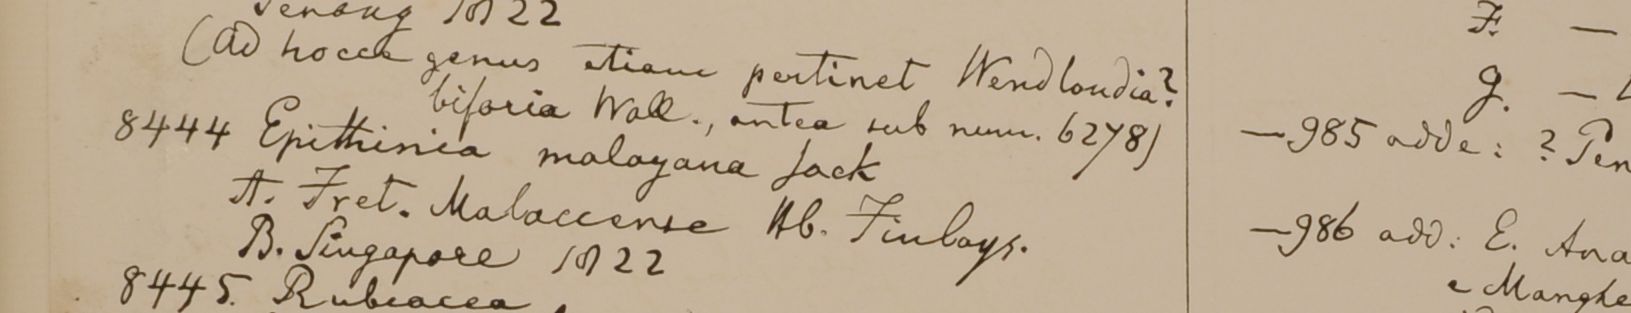 Penang 1822
(Ad hocce genus etiam pertinet Wendlandia?
bifaria Wall., antea sub num. 6278)
8444 Epithinia malayana Jack
A. Fret. Malaccense Hb. Finlays.
B. Singapore 1822
8445. Rubiacea
F. —
g. —
—985 adde: ? Pen
—986 add: E. Ava
e Manghe